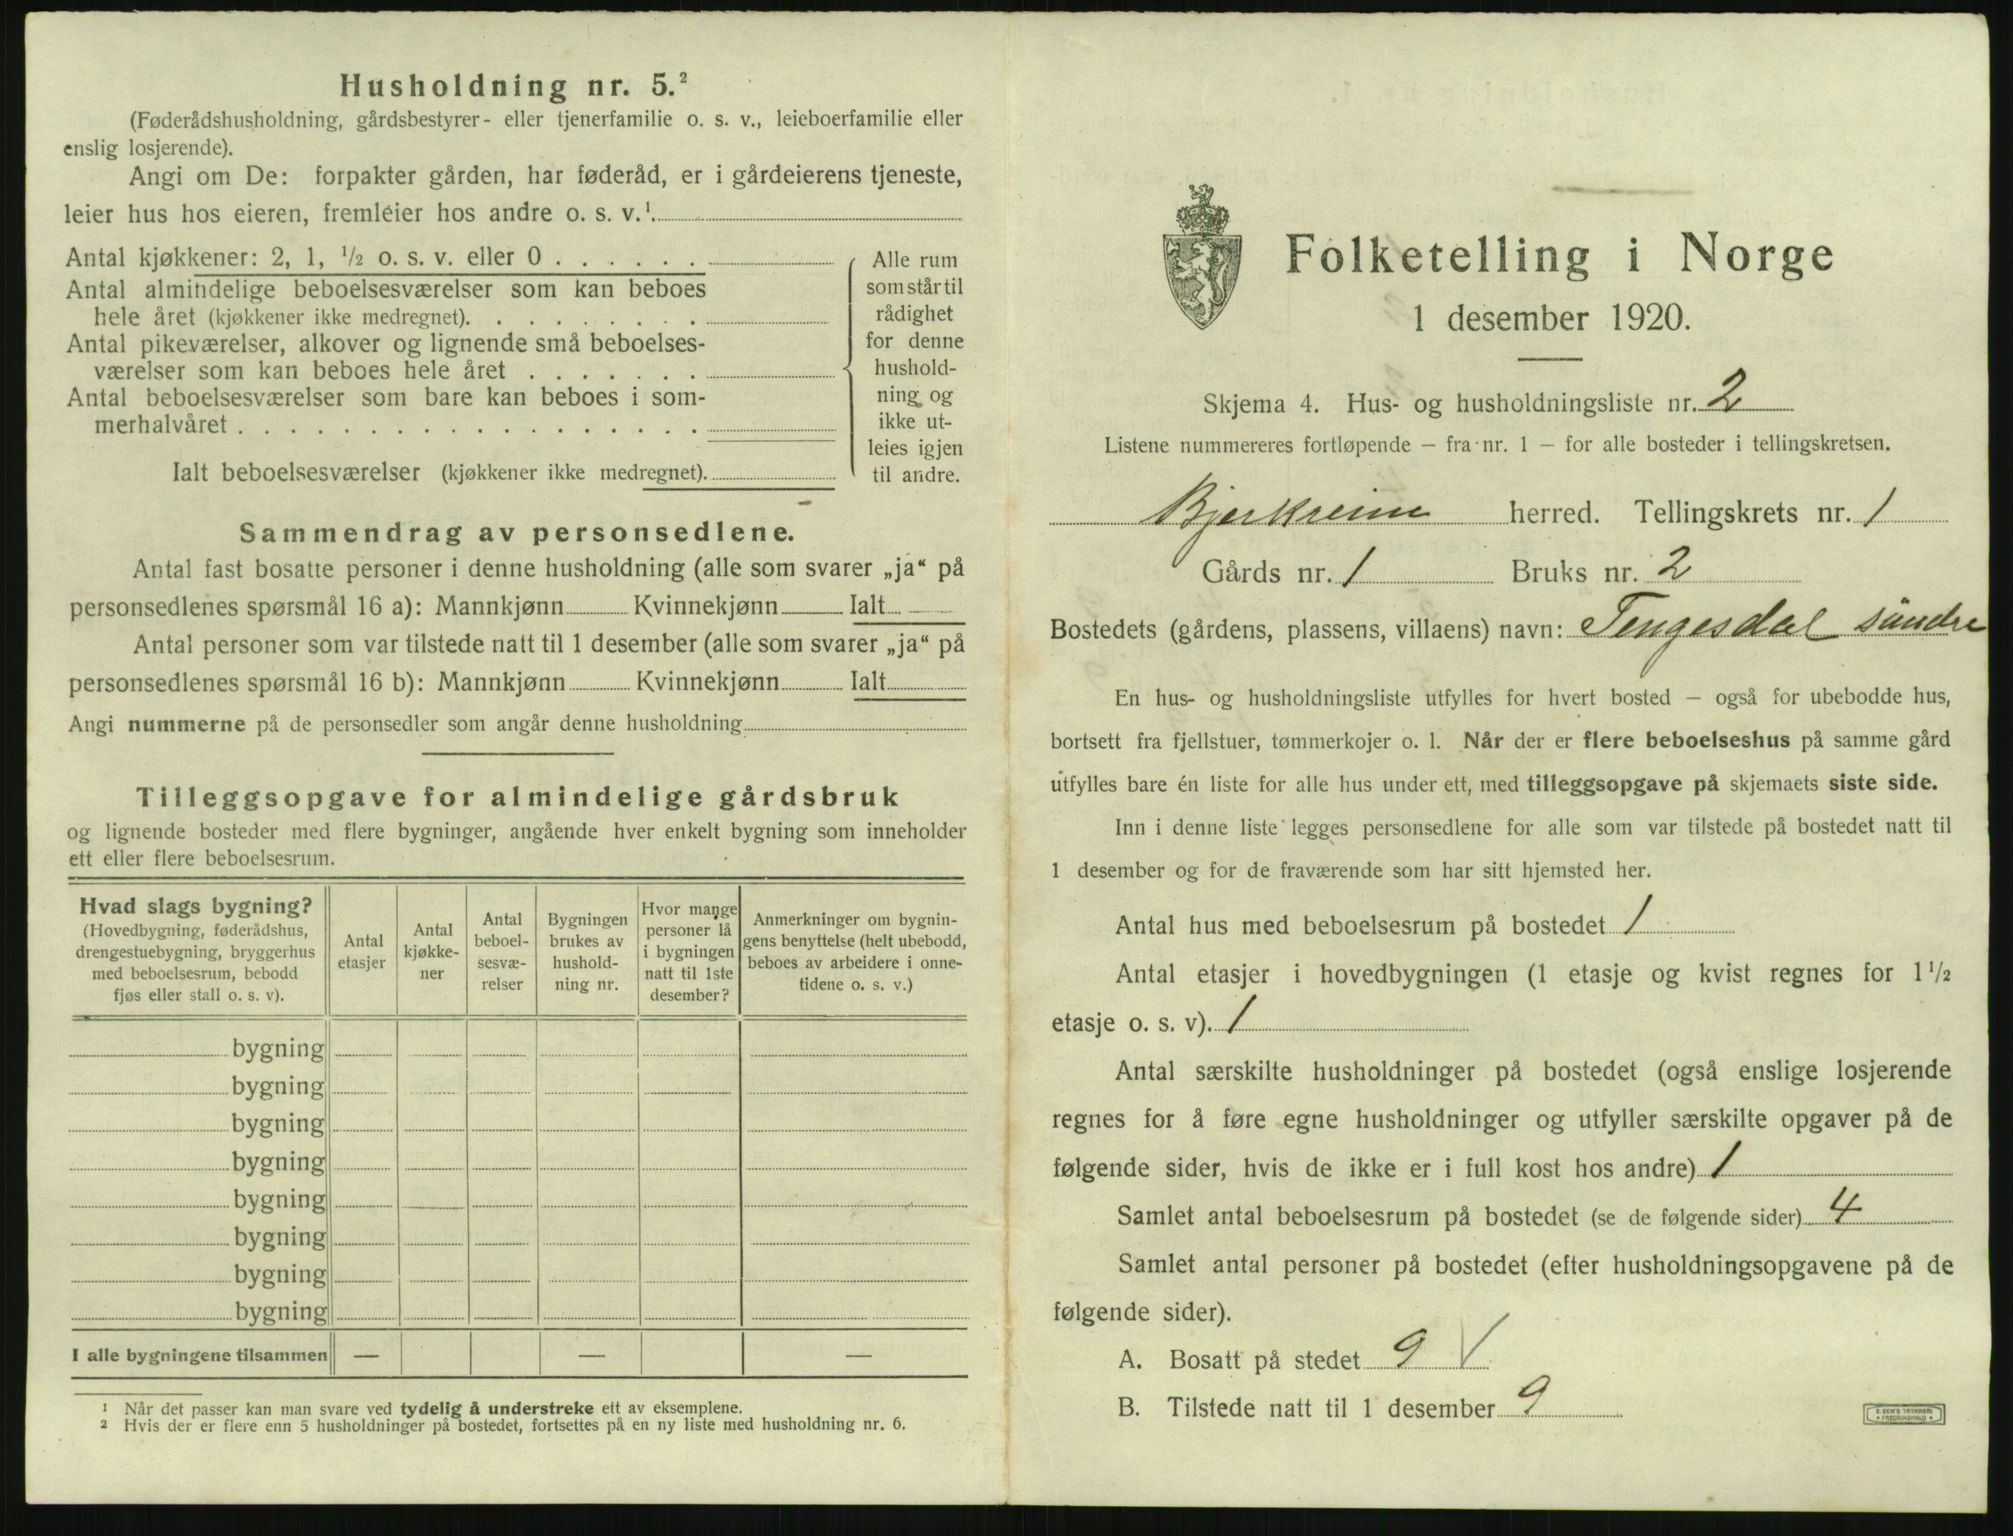 Husholdning nr. 5.²
(Føderådshusholdning, gårdsbestyrer- eller tjenerfamilie o. s. v., leieboerfamilie eller
enslig losjerende).
Angi om De: forpakter gården, har føderåd, er i gårdeierens tjeneste,
leier hus hos eieren, fremleier hos andre o. s. v.¹
Antal kjøkkener: 2, 1, ½ o. s. v. eller 0 . . . . . .
Antal almindelige beboelsesværelser som kan beboes
hele året (kjøkkener ikke medregnet). . . . . . . . .
Antal pikeværelser, alkover og lignende små beboelses-
værelser som kan beboes hele året . . . . . . .
Antal beboelsesværelser som bare kan beboes i som-
merhalvåret . . . . . . . . . . . . . . . . . .
Ialt beboelsesværelser (kjøkkener ikke medregnet).
Alle rum
som står til
rådighet
for denne
hushold-
ning og
ikke ut-
leies igjen
til andre.
Sammendrag av personsedlene.
Antal fast bosatte personer i denne husholdning (alle som svarer „ja“ på
personsedlenes spørsmål 16 a): Mannkjønn Kvinnekjønn Ialt
Antal personer som var tilstede natt til 1 desember (alle som svarer „ja“ på
personsedlenes spørsmål 16 b): Mannkjønn Kvinnekjønn Ialt
Angi nummerne på de personsedler som angår denne husholdning
Tilleggsopgave for almindelige gårdsbruk
og lignende bosteder med flere bygninger, angående hver enkelt bygning som inneholder
ett eller flere beboelsesrum.
Hvad slags bygning?
(Hovedbygning, føderådshus,
drengestuebygning, bryggerhus
med beboelsesrum, bebodd
fjøs eller stall o. s. v).
Antal
etasjer
Antal
kjøkke-
ner
Antal
beboel-
sesvæ-
relser
Bygningen
brukes av
hushold-
ning nr.
Hvor mange
personer lå
i bygningen
natt til 1ste
desember?
Anmerkninger om bygnin-
gens benyttelse (helt ubebodd,
beboes av arbeidere i onne-
tidene o. s. v.)
bygning
bygning
bygning
bygning
bygning
bygning
bygning
bygning
I alle bygningene tilsammen — — —
¹ Når det passer kan man svare ved tydelig å understreke ett av eksemplene.
² Hvis der er flere enn 5 husholdninger på bostedet, fortsettes på en ny liste med husholdning nr. 6.
Folketelling i Norge
1 desember 1920.
Skjema 4. Hus- og husholdningsliste nr. 2
Listene nummereres fortløpende — fra nr. 1 — for alle bosteder i tellingskretsen.
Bjerkreim herred. Tellingskrets nr. 1
Gårds nr. 1 Bruks nr. 2
Bostedets (gårdens, plassens, villaens) navn: Tengesdal søndre
En hus- og husholdningsliste utfylles for hvert bosted — også for ubebodde hus,
bortsett fra fjellstuer, tømmerkojer o. l. Når der er flere beboelseshus på samme gård
utfylles bare én liste for alle hus under ett, med tilleggsopgave på skjemaets siste side.
Inn i denne liste legges personsedlene for alle som var tilstede på bostedet natt til
1 desember og for de fraværende som har sitt hjemsted her.
Antal hus med beboelsesrum på bostedet 1
Antal etasjer i hovedbygningen (1 etasje og kvist regnes for 1½
etasje o. s. v). 1
Antal særskilte husholdninger på bostedet (også enslige losjerende
regnes for å føre egne husholdninger og utfyller særskilte opgaver på de
følgende sider, hvis de ikke er i full kost hos andre) 1
Samlet antal beboelsesrum på bostedet (se de følgende sider) 4
Samlet antal personer på bostedet (efter husholdningsopgavene på de
følgende sider).
A. Bosatt på stedet 9 √
B. Tilstede natt til 1 desember 9
E. SEM'S TRYKKERI
FREDRIKSHALD